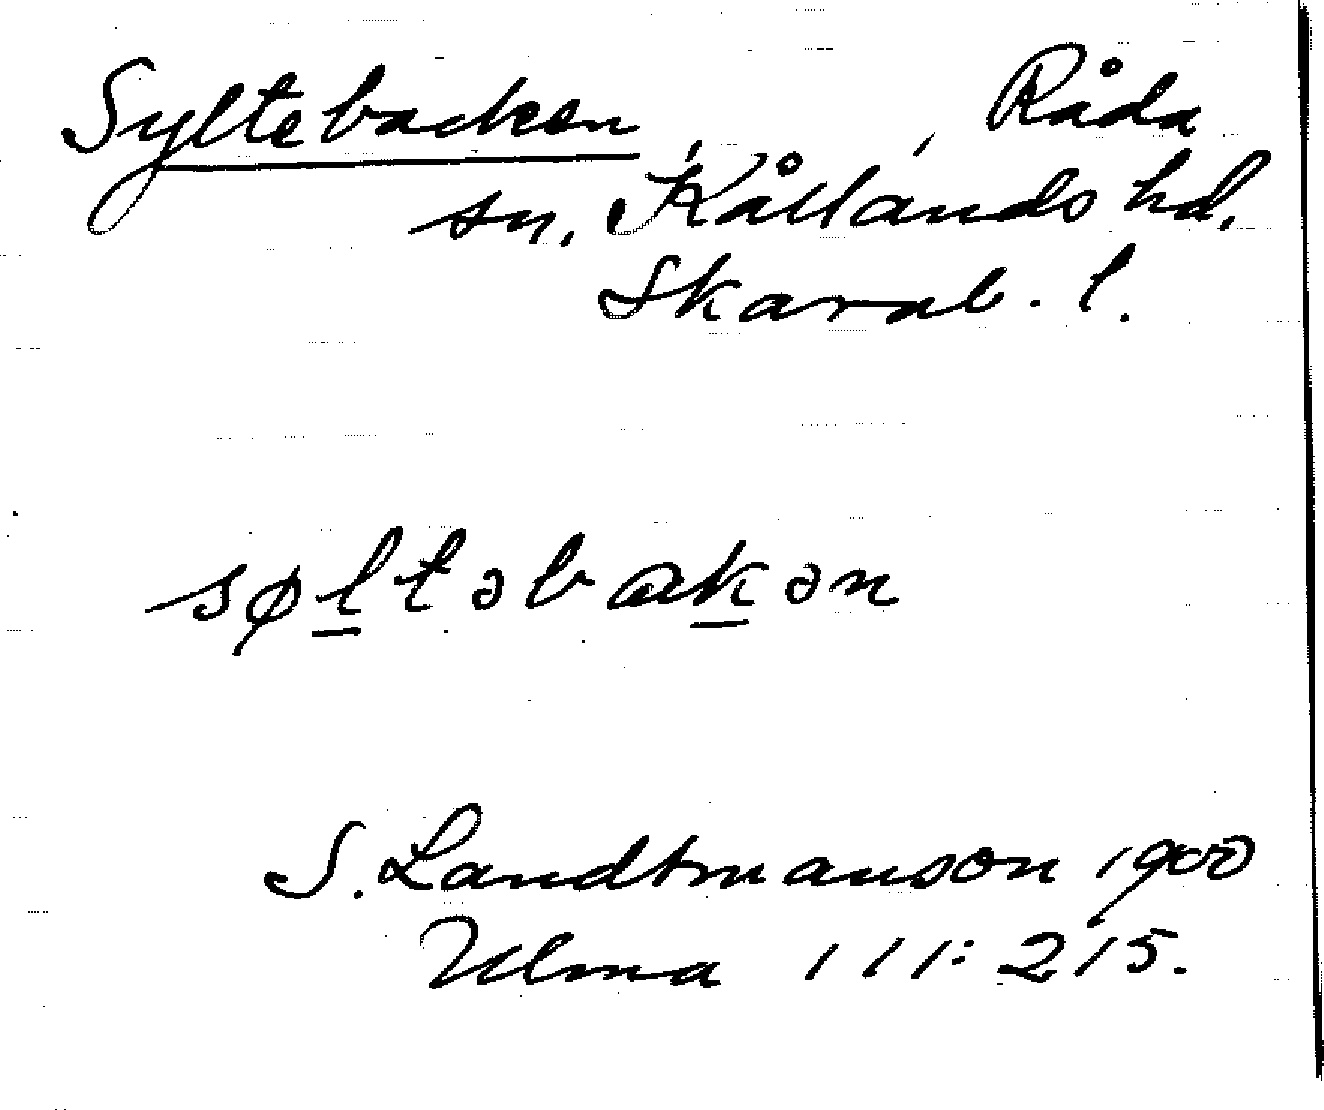 Syltebacken Råda
sn. Kållands hd.
Skarab. l.
søltəbakən
S. Landtmanson 1900
Ulma 111:215.